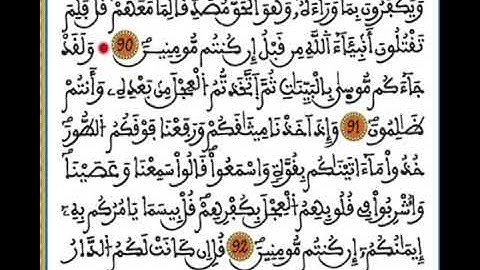 وَيَكْفُرُونَ بِمَا وَرَآءَهُۥ وَهُوَ اَ۬لْحَقُّ مُصَدِّقاٗ لِّمَا مَعَهُمْ قُلْ فَلِمَ
تَقْتُلُونَ أَنۢبِـَٔآءَ اَ۬للَّهِ مِن قَبْلُ إِن كُنتُم مُّومِنِينَ 90 وَلَقَدْ
جَآءَكُم مُّوس۪ىٰ بِالْبَيِّنَٰتِ ثُمَّ اَ۪تَّخَذتُّمُ اُ۬لْعِجْلَ مِنۢ بَعْدِهِۦ وَأَنتُمْ
ظَٰلِمُونَ 91 وَإِذَ اَخَذْنَا مِيثَٰقَكُمْ وَرَفَعْنَا فَوْقَكُمُ اُ۬لطُّورَ
خُذُواْ مَآ ءَاتَيْنَٰكُم بِقُوَّةٖ وَاسْمَعُواْ قَالُواْ سَمِعْنَا وَعَصَيْنَا
وَأُشْرِبُواْ فِے قُلُوبِهِمُ اُ۬لْعِجْلَ بِكُفْرِهِمْ قُلْ بِيسَمَا يَامُرُكُم بِهِۦٓ
إِيمَٰنُكُمُۥٓ إِن كُنتُم مُّومِنِينَ 92 قُلِ اِن كَانَتْ لَكُمُ اُ۬لدَّارُ